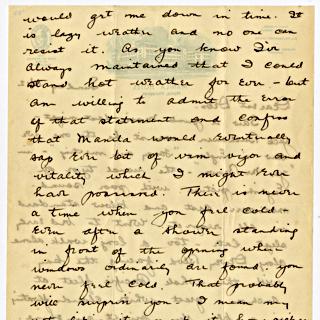 would get me down in time. It
is lazy weather and no one can
resist it. As you know I've
always maintained that I could
stand hot weather for ever - but
am willing to admit the error
of that statement and confess
that Manila would eventually
sap ever bit of vim vigor and
vitality which I might ever
have possessed. There is never
a time when you feel cold -
Even after a shower standing
in front of the opening where
windows ordinarily are found you
never feel cold. That probably
will surprise you I mean my